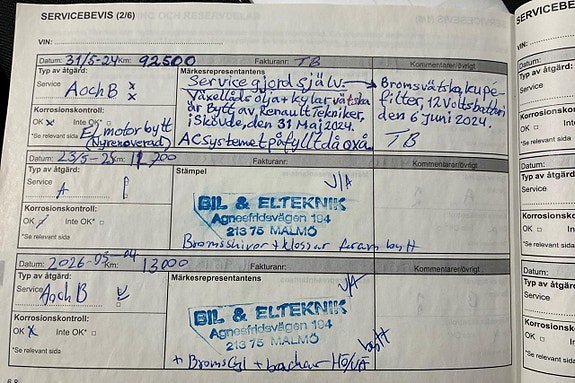 SERVICEBEVIS (2/6)
VIN:
Datum: 31/5-24 Km: 92500 Fakturanr: TB Kommentarer/övrigt
Typ av åtgärd:
Service A och B x x
Korrosionskontroll:
OK x Inte OK*
*Se relevant sida
El motor bytt
(Nyrenoverad)
Märkesrepresentantens
Service gjord själv. → Bromsvätska, kupe-
Växellåds olja + kylar vätska filter, 12 Volts batteri
är bytt av, Renault Tekniker, den 6 Juni 2024.
i Skövde, den 31 Maj 2024.
AC systemet påfyllt då oxå. TB
Datum: 23/5-25 Km: Fakturanr: Kommentarer/övrigt
Typ av åtgärd:
Service A
Korrosionskontroll:
OK Inte OK*
*Se relevant sida
Stämpel
U/A
BIL & ELTEKNIK
Agnesfridsvägen 194
213 75 MALMÖ
Bromsskivor + klossar fram bytt
Datum: 2026-05-04 Km: 13000 Fakturanr: Kommentarer/övrigt
Typ av åtgärd:
Service A och B
Korrosionskontroll:
OK x Inte OK*
*Se relevant sida
Märkesrepresentantens
U/A
BIL & ELTEKNIK
Agnesfridsvägen 194
213 75 MALMÖ
+ Bromscyl + backar HÖ/VÄ bytt
68
SERVICEBEVIS
VIN:
Datum:
Typ av åtgärd:
Service
Korrosionskontroll:
OK
*Se relevant sida
Datum:
Typ av åtgärd:
Service
Korrosionskontroll:
OK
*Se relevant sida
Datum:
Typ av åtgärd:
Service
Korrosionskontroll
OK
*Se relevant